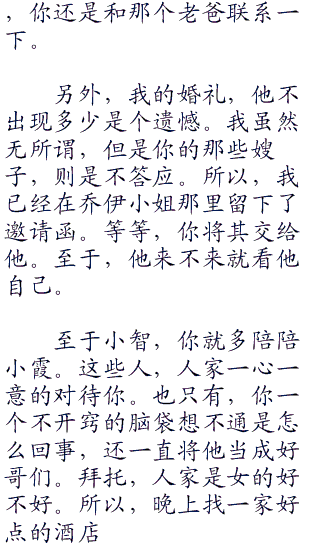 ，你还是和那个老爸联系一
下。
另外，我的婚礼，他不
出现多少是个遗憾。我虽然
无所谓，但是你的那些嫂
子，则是不答应。所以，我
已经在乔伊小姐那里留下了
邀请函。等等，你将其交给
他。至于，他来不来就看他
自己。
至于小智，你就多陪陪
小霞。这些人，人家一心一
意的对待你。也只有，你一
个不开窍的脑袋想不通是怎
么回事，还一直将他当成好
哥们。拜托，人家是女的好
不好。所以，晚上找一家好
点的酒店